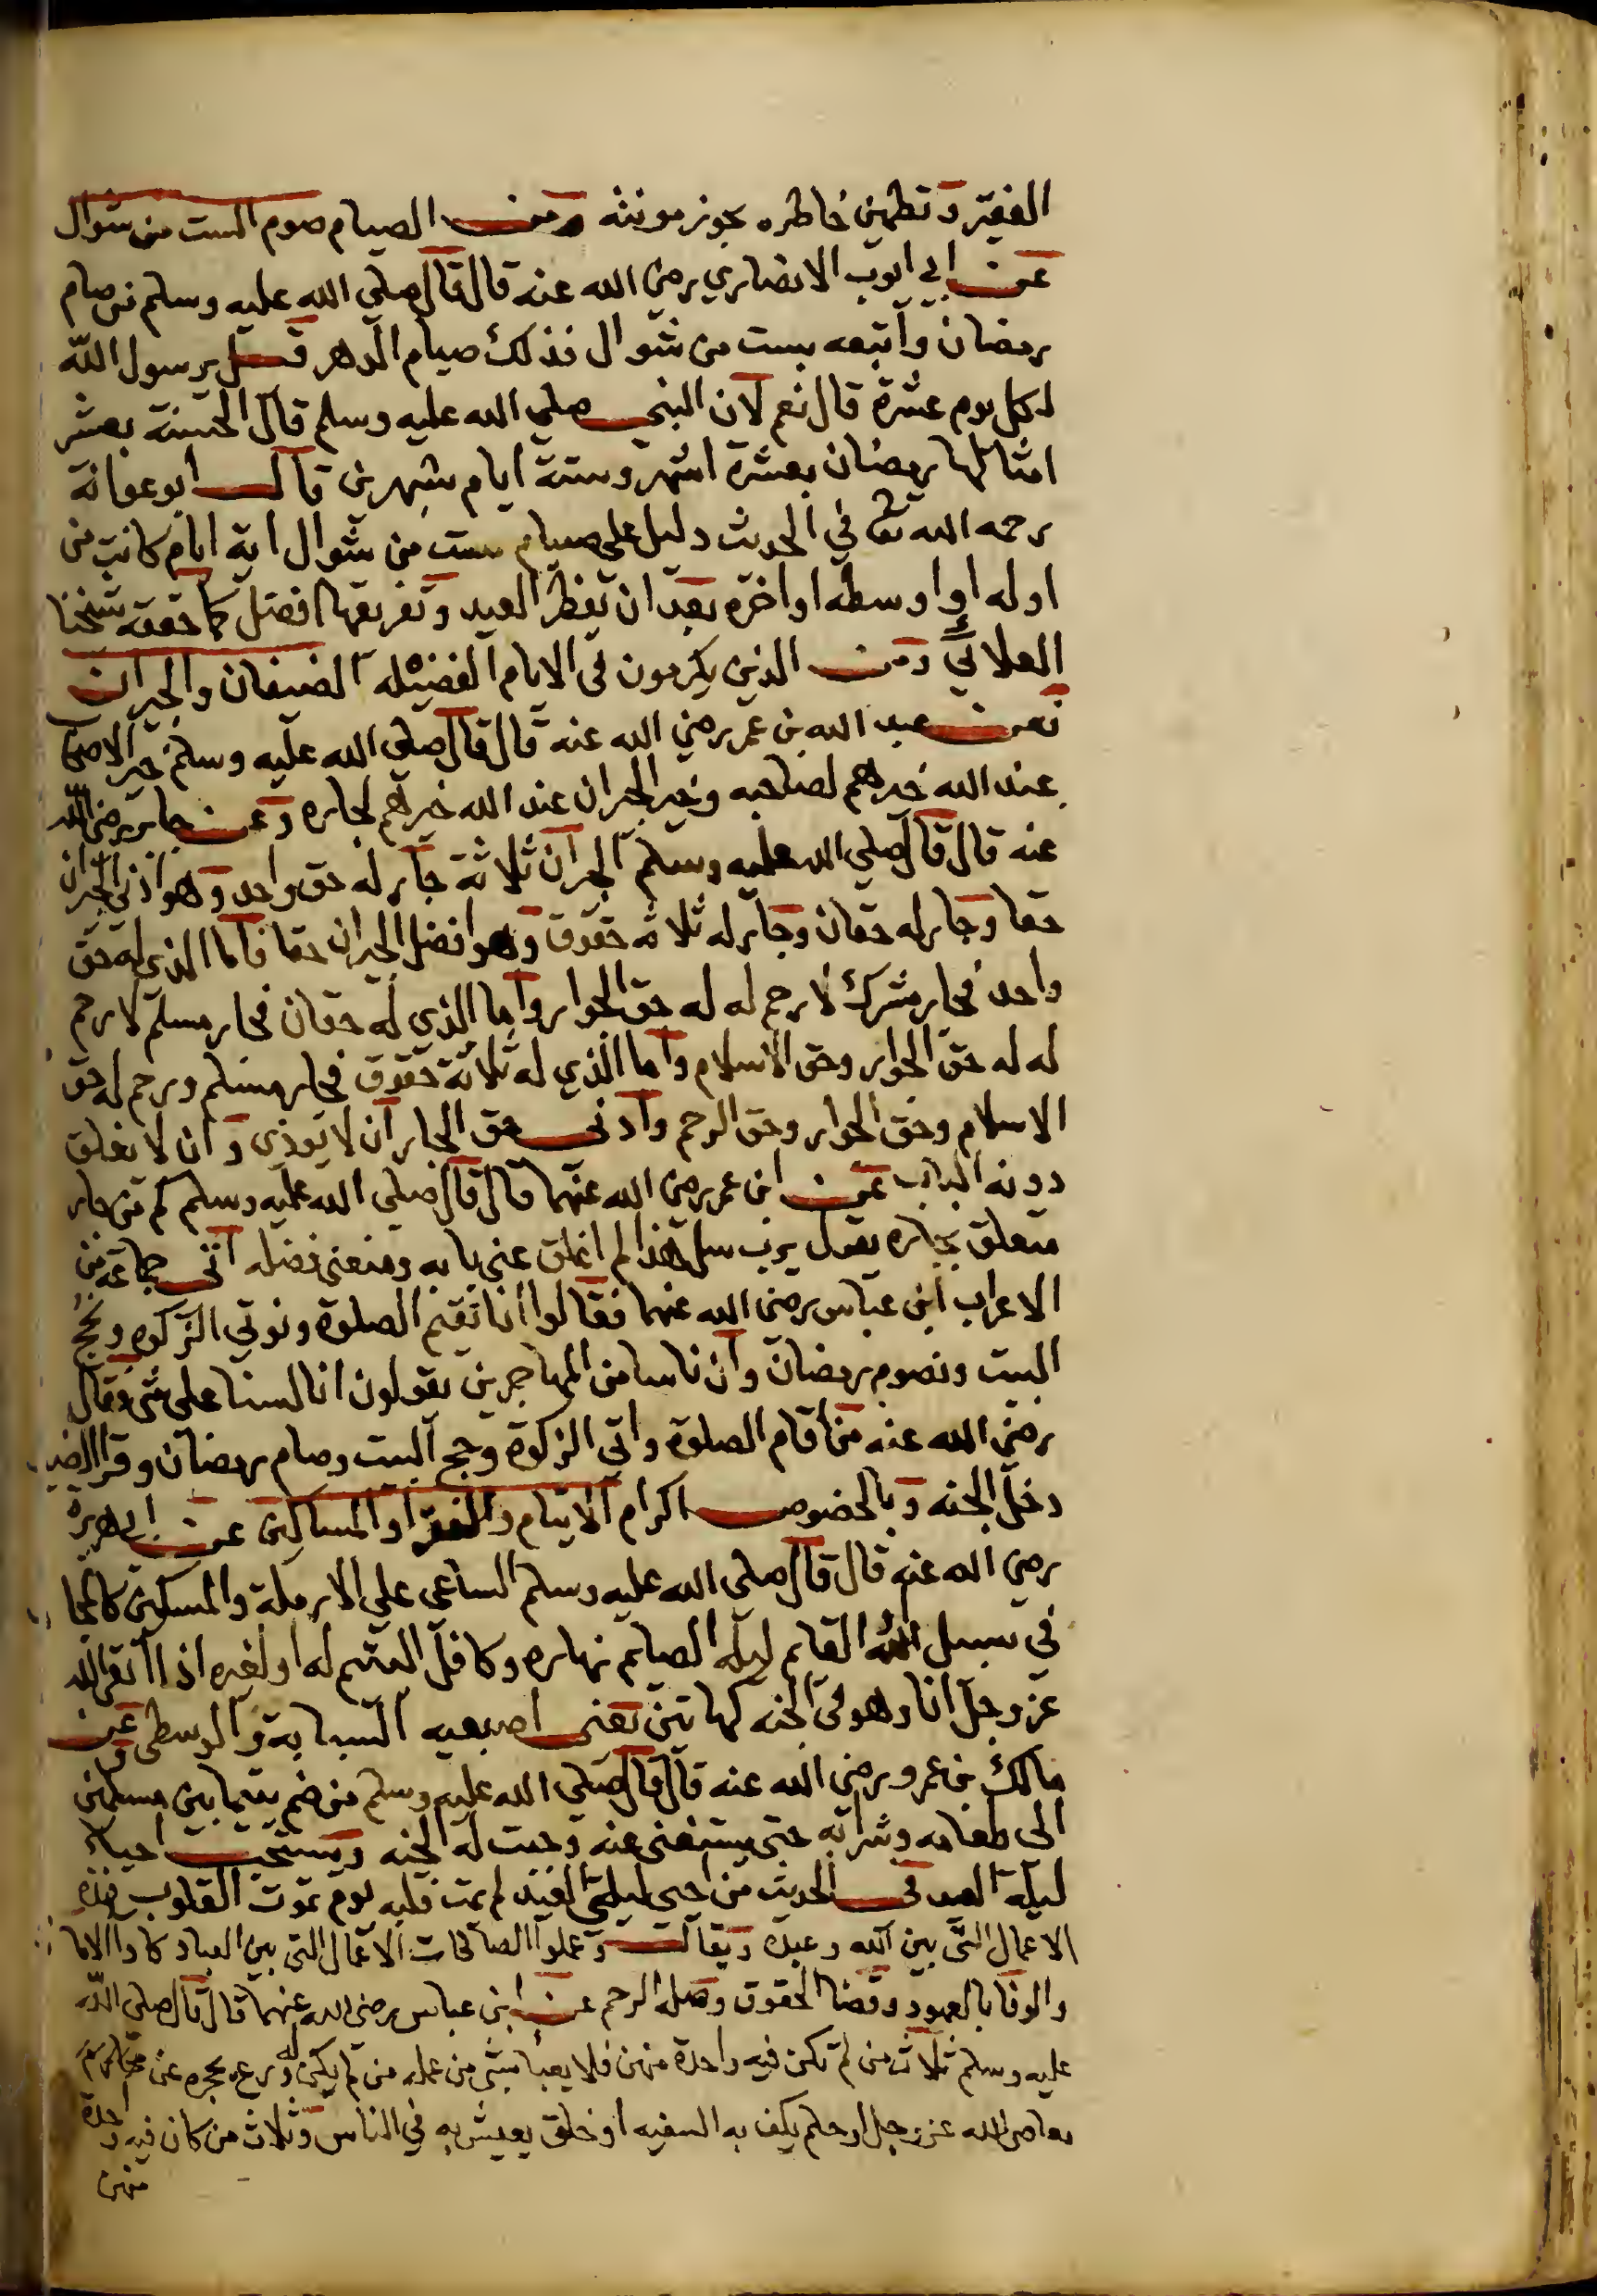 الفقير وتطمين خاطره بحوز مونته ومن الصيام صوم الست من شوال
عن ابي ايوب الانصاري رضي الله عنه قال قال صلي الله عليه وسلم من صام
رمضان واتبعه بست من شوال فذلك صيام الدهر قيل يرسول الله
لكل يوم عشرة قال نعم لان النبي صلي الله عليه وسلم قال الحسنة بعشر
امثالها رمضان بعشرة اشهر وستة ايام بشهرين قال ابو عوانة
رحمه الله تعا في الحديث دليل علي صيام ست من شوال اية ايام كانت من
اوله او اوسطه او اخره بعد ان يفطر العيد وتفريقها افضل كما حققه شيخنا
العلائي ومن الذين يكرمون في الايام الفضيله الضيفان والجيران
فعن عبد الله بن عمر رضي الله عنه قال قال صلي الله عليه وسلم خير الاصحاب
عند الله خيرهم لصاحبه وخير الجيران عند الله خيرهم لجاره وعن جابر رضي الله
عنه قال قال صلي الله عليه وسلم الجيران ثلاثة جار له حق واحد وهو ادني الجيران
حقا وجار له حقان وجار له ثلاثة حقوق وهو افضل الجيران حقا فاما الذي له حق
واحد فجار مشرك لا رحم له له حق الجوار واما الذي له حقان فجار مسلم لا رحم
له له حق الجوار وحق الاسلام واما الذي له ثلاثة حقوق فجار مسلم ورحم له حق
الاسلام وحق الجوار وحق الرحم وادنى حق الجار ان لا يوذي وان لا يغلق
دونه الباب عن ابن عمر رضي الله عنهما قال قال صلي الله عليه وسلم كم من جار
متعلق بجاره يقول يرب سل هذا لم اغلق عني بابه ومنعني فضله اتى جماعة من
الاعراب ابن عباس رضي الله عنهما فقالوا انا نقيم الصلوة ونوتي الزكوة ونحج
البيت ونصوم رمضان وان ناسا من المهاجرين يقولون انا لسنا على شي فقال
رضي الله عنه من اقام الصلوة واتى الزكوة وحج البيت وصام رمضان وقرا الضيف
دخل الجنه وبالخصوص اكرام الايتام والفقرا والمساكين عن ابي هريرة
رضي الله عنه قال قال صلى الله عليه وسلم الساعي علي الارملة والمسكين كالمجا
في سبيل الله القايم ليله الصايم نهاره وكافل اليتيم له او لغيره اذا اتقى الله
عز وجل انا وهو في الجنه كهاتين يعني اصبعيه السبابة والوسطى وعن
مالك بن عمرو رضي الله عنه قال قال صلي الله عليه وسلم من ضم يتيما بين مسلمين
الى طعامه وشرابه حتى يستغنى عنه وجبت له الجنه ويستحب احياء
ليلة العيد في الحديث من احيى ليلتي العيد لم يمت قلبه يوم تموت القلوب فهذه
الاعمال التي بين الله وعبده ويقال وعملوا الصالحات الاعمال التي بين العباد كادا الاما
والوفا بالعهود وقضا الحقوق وصلة الرحم عن ابن عباس رضي الله عنهما قال قال صلى الله
عليه وسلم ثلاث من لم تكن فيه واحدة منهن فلا يعبأ بشي من عمله من لم يكن له ورع يحجره عن محارم
معاصي الله عز وجل او حلم يكف به السفيه او خلق يعيش به في الناس وثلاث من كان فيه واحدة
منهن